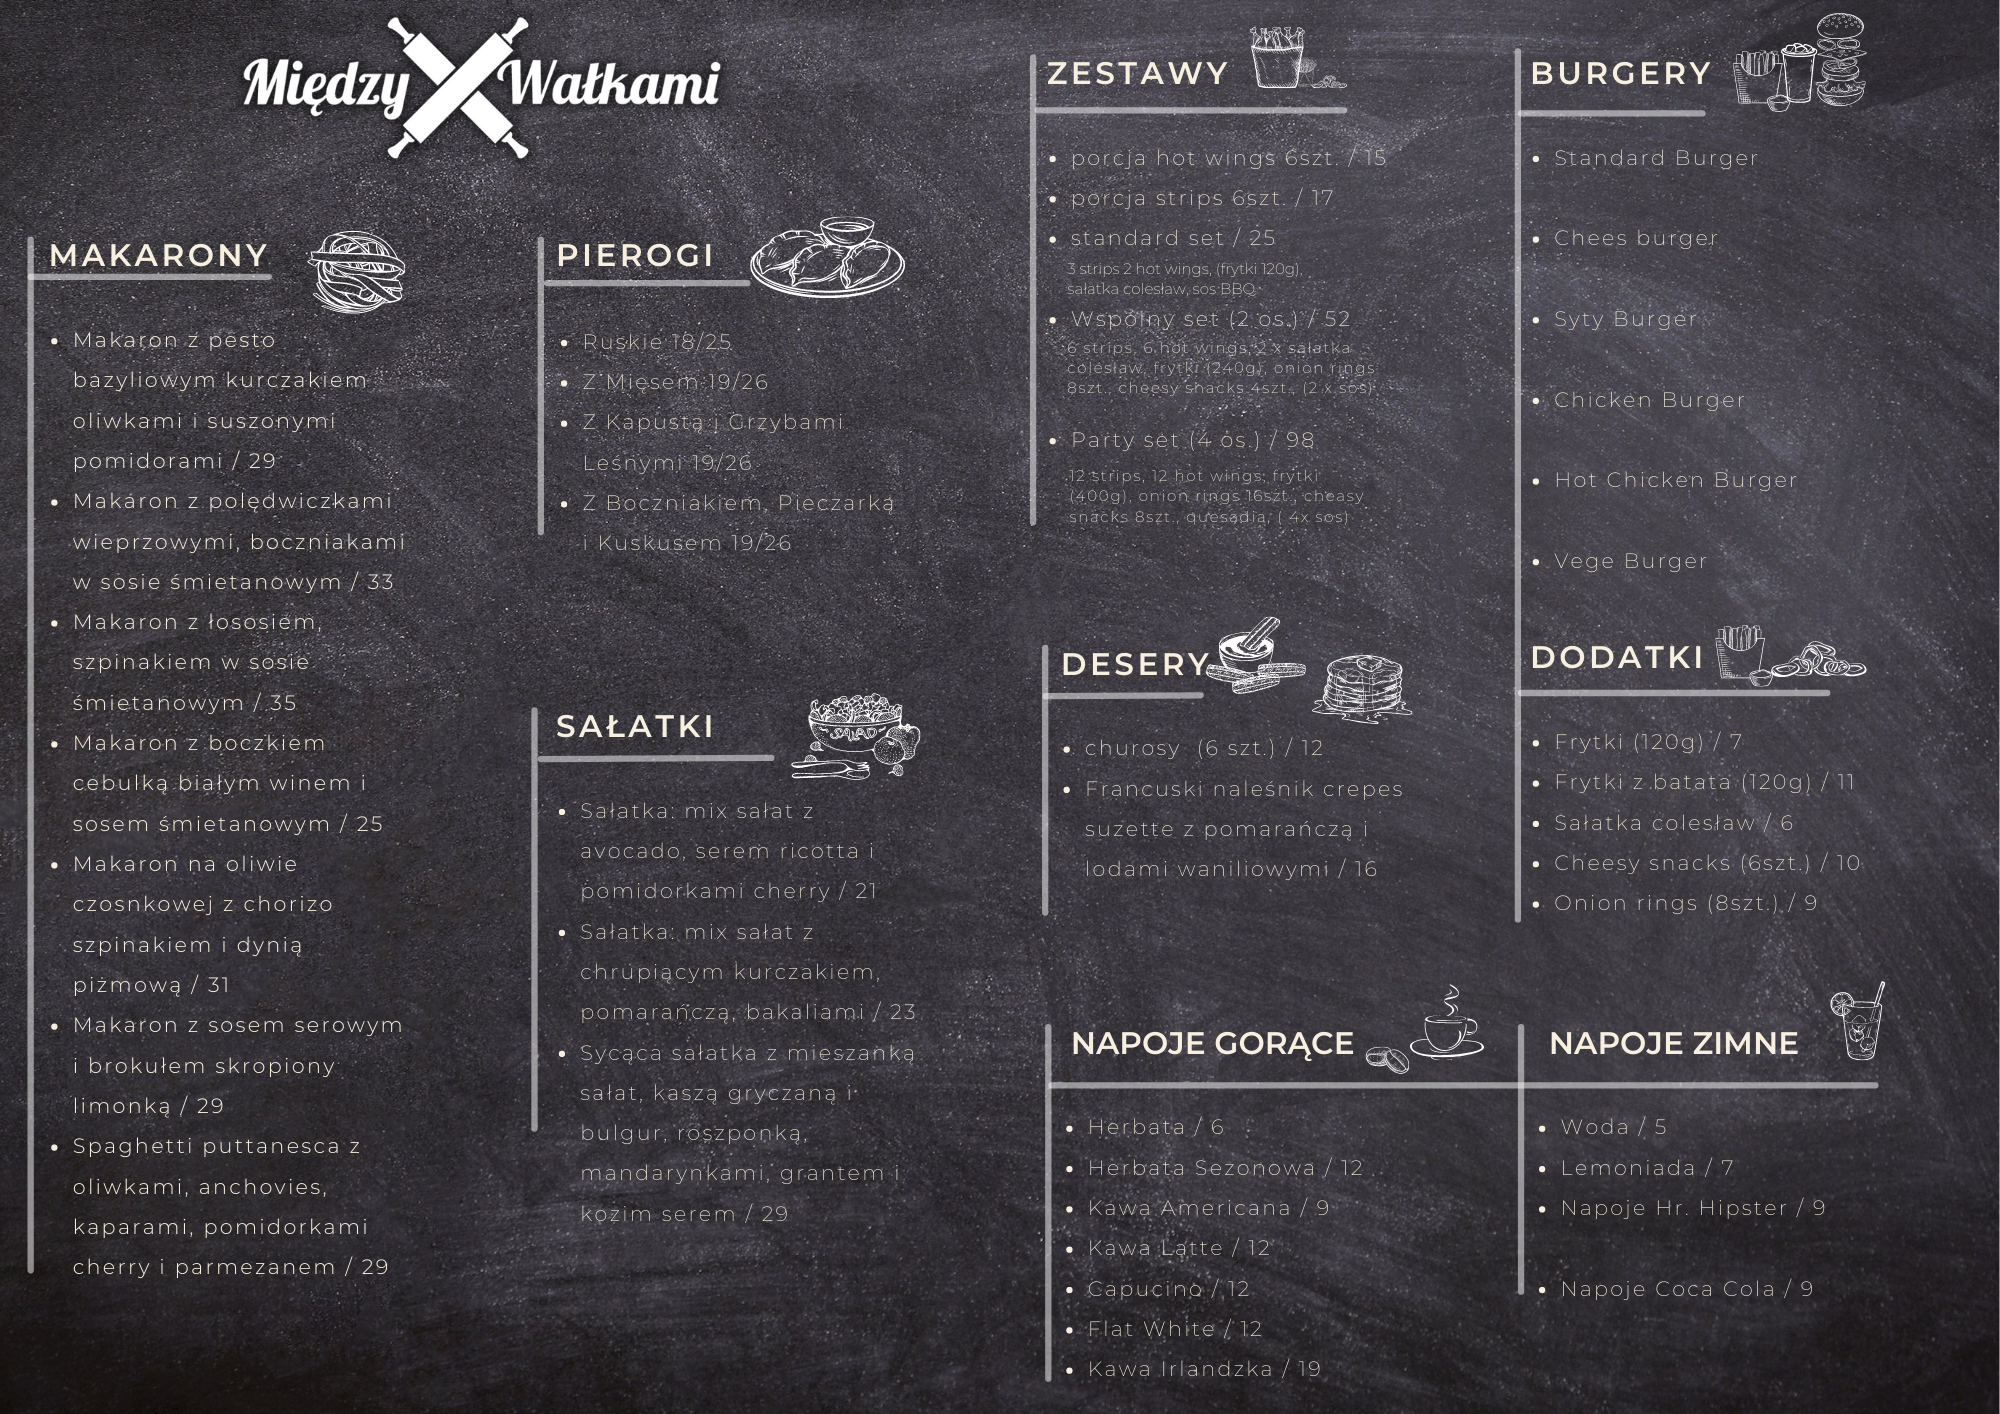 Między Wałkami
MAKARONY
Makaron z pesto
bazyliowym kurczakiem
oliwkami i suszonymi
pomidorami / 29
Makaron z polędwiczkami
wieprzowymi, boczniakami
w sosie śmietanowym / 33
Makaron z łososiem,
szpinakiem w sosie
śmietanowym / 35
Makaron z boczkiem
cebulką białym winem i
sosem śmietanowym / 25
Makaron na oliwie
czosnkowej z chorizo
szpinakiem i dynią
piżmową / 31
Makaron z sosem serowym
i brokułem skropiony
limonką / 29
Spaghetti puttanesca z
oliwkami, anchovies,
kaparami, pomidorkami
cherry i parmezanem / 29
PIEROGI
Ruskie 18/25
Z Mięsem 19/26
Z Kapustą i Grzybami
Leśnymi 19/26
Z Boczniakiem, Pieczarką
i Kuskusem 19/26
SAŁATKI
SALAD
Sałatka: mix sałat z
avocado, serem ricotta i
pomidorkami cherry / 21
Sałatka: mix sałat z
chrupiącym kurczakiem,
pomarańczą, bakaliami / 23
Sycąca sałatka z mieszanką
sałat, kaszą gryczaną i
bulgur, roszponką,
mandarynkami, grantem i
kozim serem / 29
ZESTAWY
porcja hot wings 6szt. / 15
porcja strips 6szt. / 17
standard set / 25
3 strips 2 hot wings, (frytki 120g),
sałatka colesław, sos BBQ
Wspólny set (2 os.) / 52
6 strips, 6 hot wings, 2 x sałatka
colesław, frytki (240g), onion rings
8szt., cheesy snacks 4szt., (2 x sos)
Party set (4 os.) / 98
12 strips, 12 hot wings, frytki
(400g), onion rings 16szt., cheasy
snacks 8szt., quesadia, ( 4x sos)
DESERY
churosy (6 szt.) / 12
Francuski naleśnik crepes
suzette z pomarańczą i
lodami waniliowymi / 16
NAPOJE GORĄCE
Herbata / 6
Herbata Sezonowa / 12
Kawa Americana / 9
Kawa Latte / 12
Capucino / 12
Flat White / 12
Kawa Irlandzka / 19
BURGERY
Standard Burger
Chees burger
Syty Burger
Chicken Burger
Hot Chicken Burger
Vege Burger
DODATKI
Frytki (120g) / 7
Frytki z batata (120g) / 11
Sałatka colesław / 6
Cheesy snacks (6szt.) / 10
Onion rings (8szt.) / 9
NAPOJE ZIMNE
Woda / 5
Lemoniada / 7
Napoje Hr. Hipster / 9
Napoje Coca Cola / 9